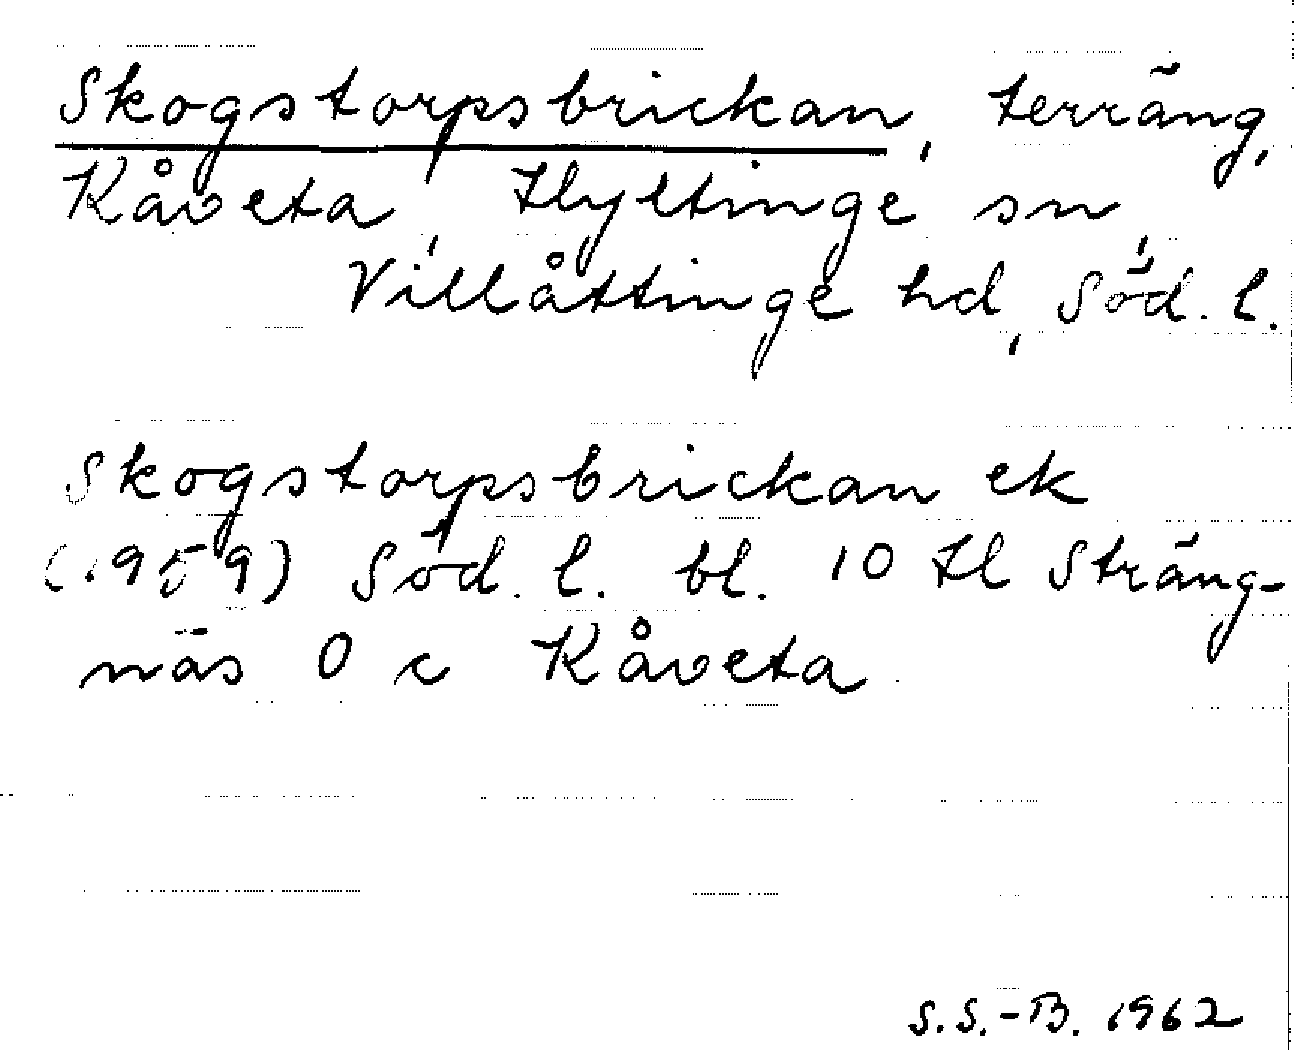 Skogstorpsbrickan, terräng,
Kåveta, Hyltinge sn,
Villåttinge hd, Söd. l.
Skogstorpsbrickan ek
(1959) Söd. l. bl. 10 Hl Sträng-
näs 0 c Kåveta
S.S.-B. 1962